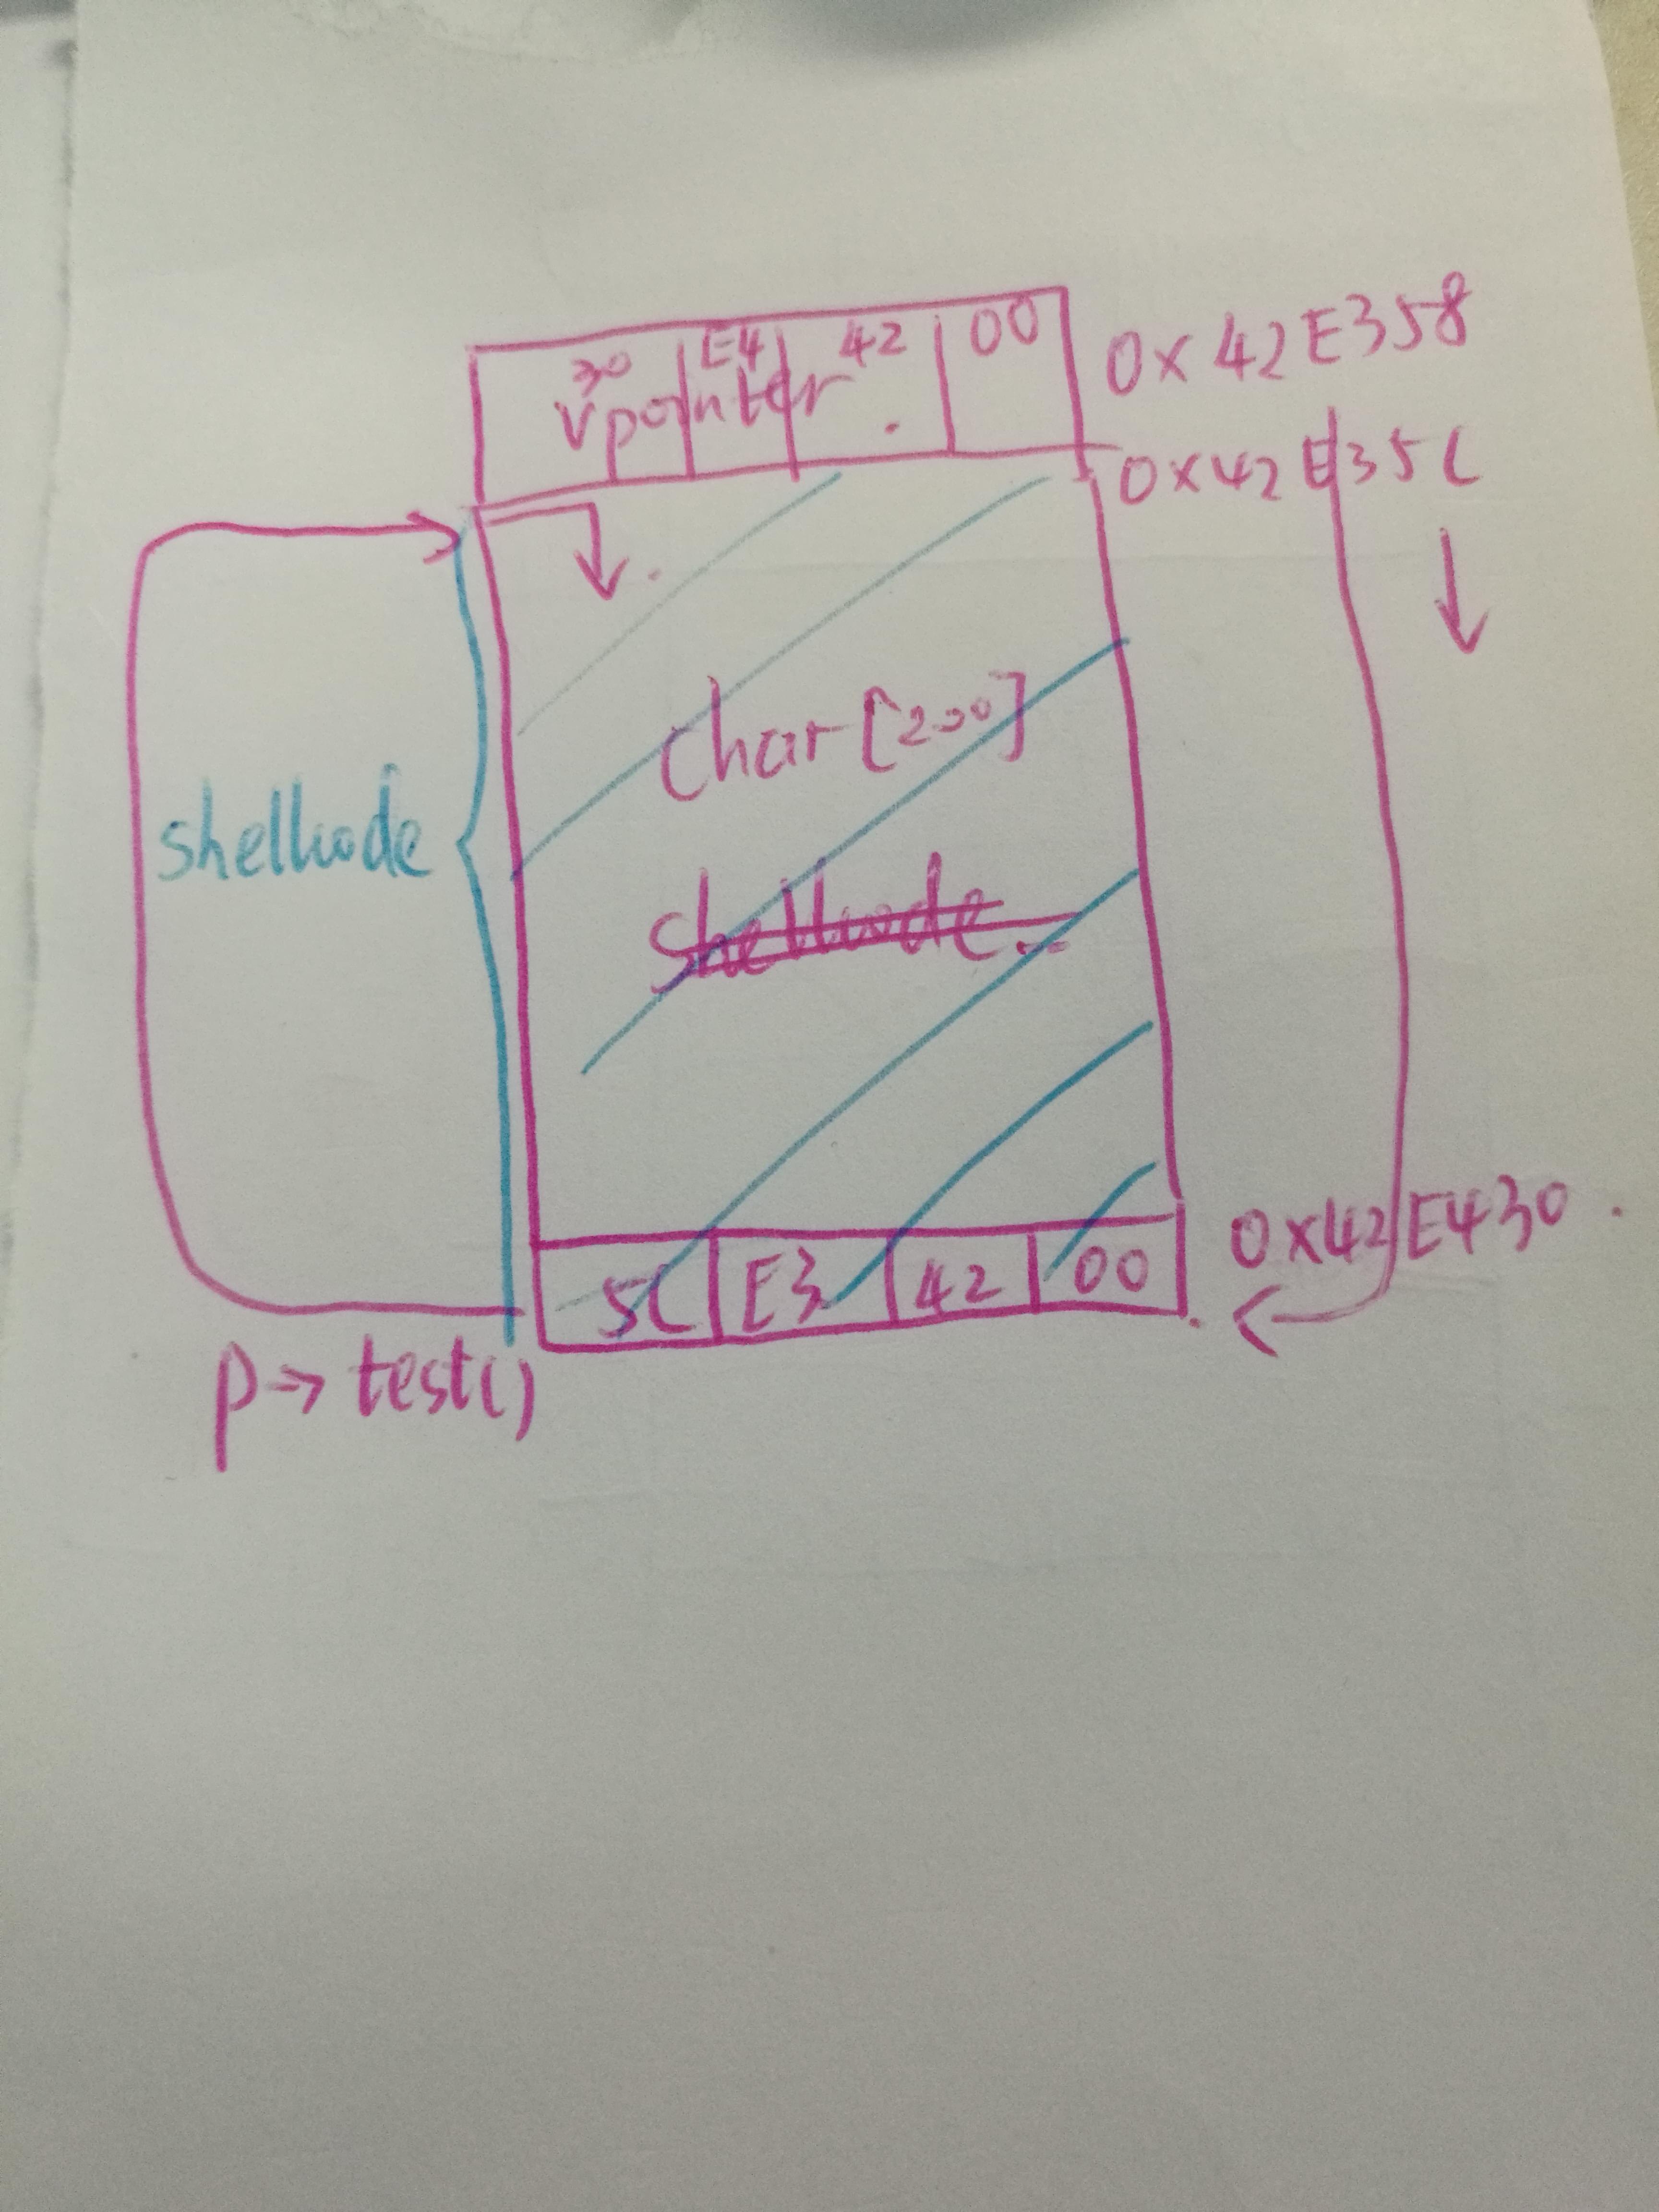 30 E4 42 00
Vpointer
0x42E358
0x42E35C
char[200]
shellcode
shellcode
0x42E430
5C E3 42 00
p→test()